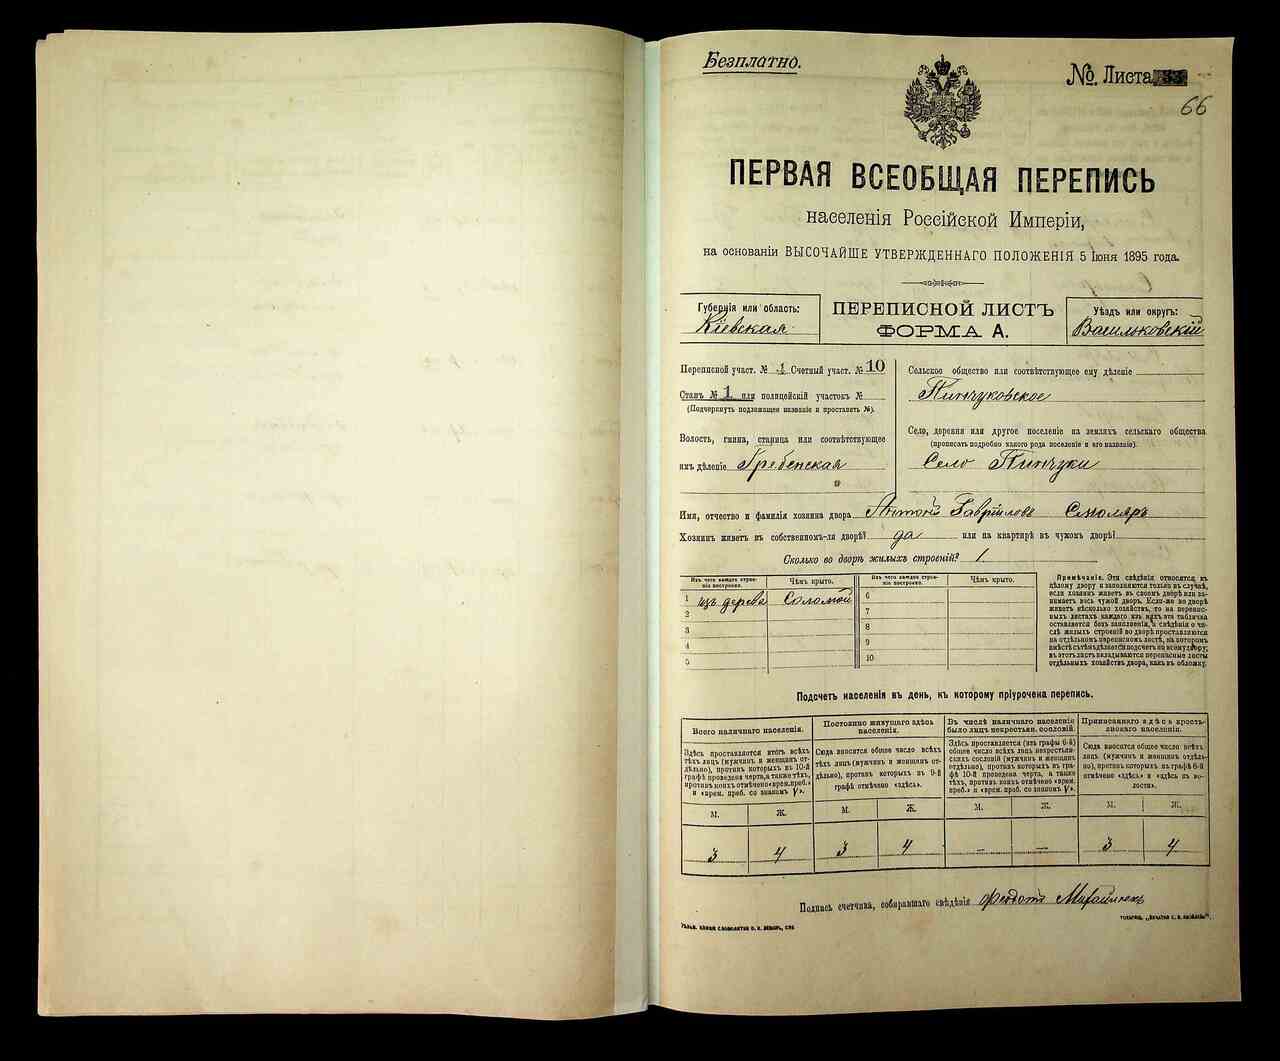 Безплатно.
№ Листа 33
66
ПЕРВАЯ ВСЕОБЩАЯ ПЕРЕПИСЬ
населенія Россійской Имперіи,
на основаніи ВЫСОЧАЙШЕ УТВЕРЖДЕННАГО ПОЛОЖЕНІЯ 5 Іюня 1895 года.
Губернія или область:
Кіевская
ПЕРЕПИСНОЙ ЛИСТЪ
ФОРМА А.
Уѣздъ или округъ:
Васильковскій
Переписной участ. № 1 Счетный участ. № 10
Станъ № 1 или полицейскій участокъ №
(Подчеркнуть подлежащее названіе и проставить №).
Волость, гмина, станица или соотвѣтствующее
имъ дѣленіе Гребенская
Сельское общество или соотвѣтствующее ему дѣленіе
Пинчуковское
Село, деревня или другое поселеніе на земляхъ сельскаго общества
(прописать подробно какого рода поселеніе и его названіе).
Село Пинчуки
Имя, отчество и фамилія хозяина двора Антонъ Гавріиловъ Столяръ
Хозяинъ живетъ въ собственномъ-ли дворѣ? да или на квартирѣ въ чужомъ дворѣ?
Сколько во дворѣ жилыхъ строеній? 1.
Изъ чего каждое строеніе построено.
Чѣмъ крыто.
Изъ чего каждое строеніе построено.
Чѣмъ крыто.
1 изъ дерева Соломой
2
3
4
5
6
7
8
9
10
Примѣчаніе. Эти свѣдѣнія относятся къ
цѣлому двору и заполняются только въ случаѣ,
если хозяинъ живетъ въ своемъ дворѣ или занимаетъ
весь чужой дворъ. Если-же во дворѣ
живетъ нѣсколько хозяйствъ, то на переписныхъ
листахъ каждаго изъ нихъ эта табличка
оставляется безъ заполненія, а свѣдѣнія о числѣ
жилыхъ строеній во дворѣ проставляются
на отдѣльномъ переписномъ листѣ, на которомъ
вмѣстѣ съ тѣмъ дѣлается и подсчетъ по всему двору;
въ этотъ листъ вкладываются переписные листы
отдѣльныхъ хозяйствъ двора, какъ въ обложку.
Подсчетъ населенія въ день, къ которому пріурочена перепись.
Всего наличнаго населенія.
Здѣсь проставляется итогъ всѣхъ
тѣхъ лицъ (мужчинъ и женщинъ отдѣльно),
противъ которыхъ въ 10-й
графѣ проведена черта, а также тѣхъ,
противъ коихъ отмѣчено «врем. преб.»
и «врем. преб. со знакомъ V».
Постоянно живущаго здѣсь
населенія.
Сюда вносится общее число всѣхъ
тѣхъ лицъ (мужчинъ и женщинъ отдѣльно),
противъ которыхъ въ 9-й
графѣ отмѣчено «здѣсь».
Въ числѣ наличнаго населенія
было лицъ некрестьян. сословій.
Здѣсь проставляется (изъ графы 6-й)
общее число всѣхъ лицъ некрестьянскихъ
сословій (мужчинъ и женщинъ
отдѣльно), противъ которыхъ въ графѣ
10-й проведена черта, а также
тѣхъ, противъ коихъ отмѣчено «врем.
преб.» и «врем. преб. со знакомъ V».
Приписаннаго здѣсь крестьянскаго
населенія.
Сюда вносится общее число всѣхъ
лицъ (мужчинъ и женщинъ отдѣльно),
противъ которыхъ въ графѣ 8-й
отмѣчено «здѣсь» и «здѣсь въ волости».
М. Ж. М. Ж. М. Ж. М. Ж.
3 4 3 4 — — 3 4
Подпись счетчика, собиравшаго свѣдѣнія Феодотъ